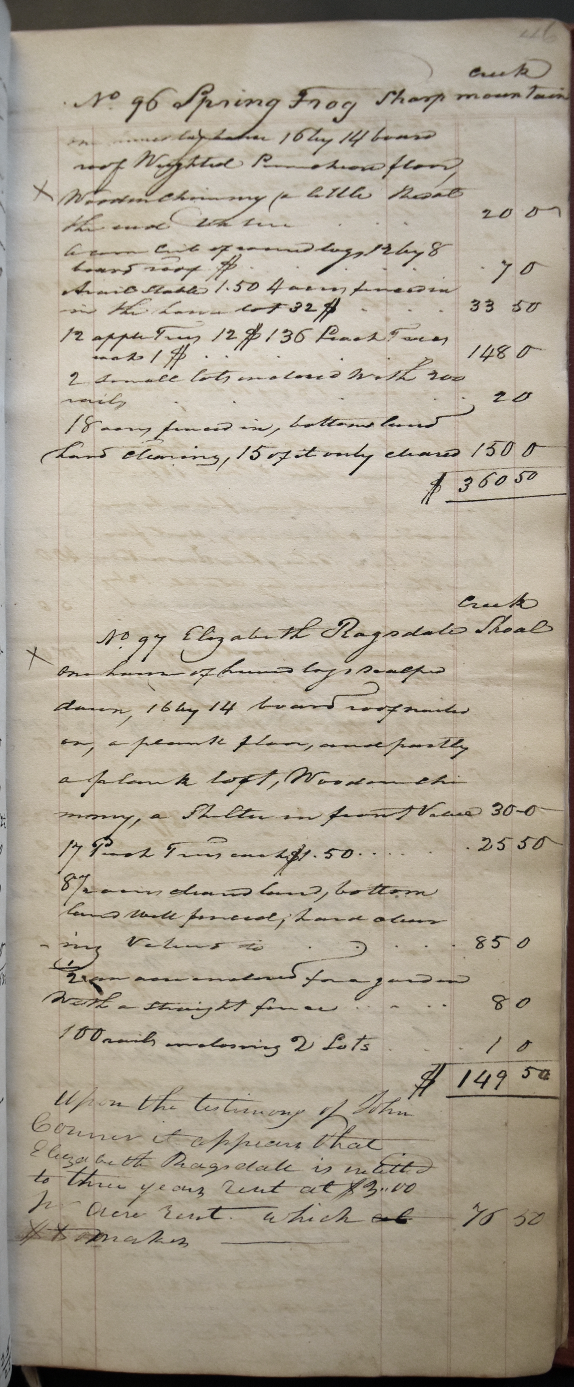 46
creek
No 96 Spring Frog Sharp mountain
house 16 by 14 board
roof Weighted Puncheon floor,
x Wooden Chimny (a little
the end 20 0
a corn Crib of round logs, 12 by 8
board roof $ 7 0
A rail Stable 1.50 4 acres fenced in
in the house lot 32 $ 33 50
12 apple Trees 12 $ 136 Peach Trees
each 1 $ 148 0
2 small lots enclosed With 200
rails 2 0
18 acres fenced in, bottom land
hard clearing, 15 of it only cleared 150 0
$ 360 50
creek
No. 97 Elizabeth Ragsdale Shoal
x One house of hewed logs scalped
down, 16 by 14 board roof nailed
on, a plank floor, and partly
a plank loft, Wooden Chi
mney, a Shelter in front Value 30-0
17 Peach Trees each $1.50 25 50
8½ acres cleared land, bottom
land well fenced, hard clear
ing Valued to 85 0
½ an acre enclosed for a garden
With a straight fence 8 0
100 rails enclosing 2 Lots 1 0
$ 149 50
Upon the testimony of John
it appears that
Elizabeth Ragsdale is entitled
to three years rent at $3.00
pr acre rent. which 76 50
makes